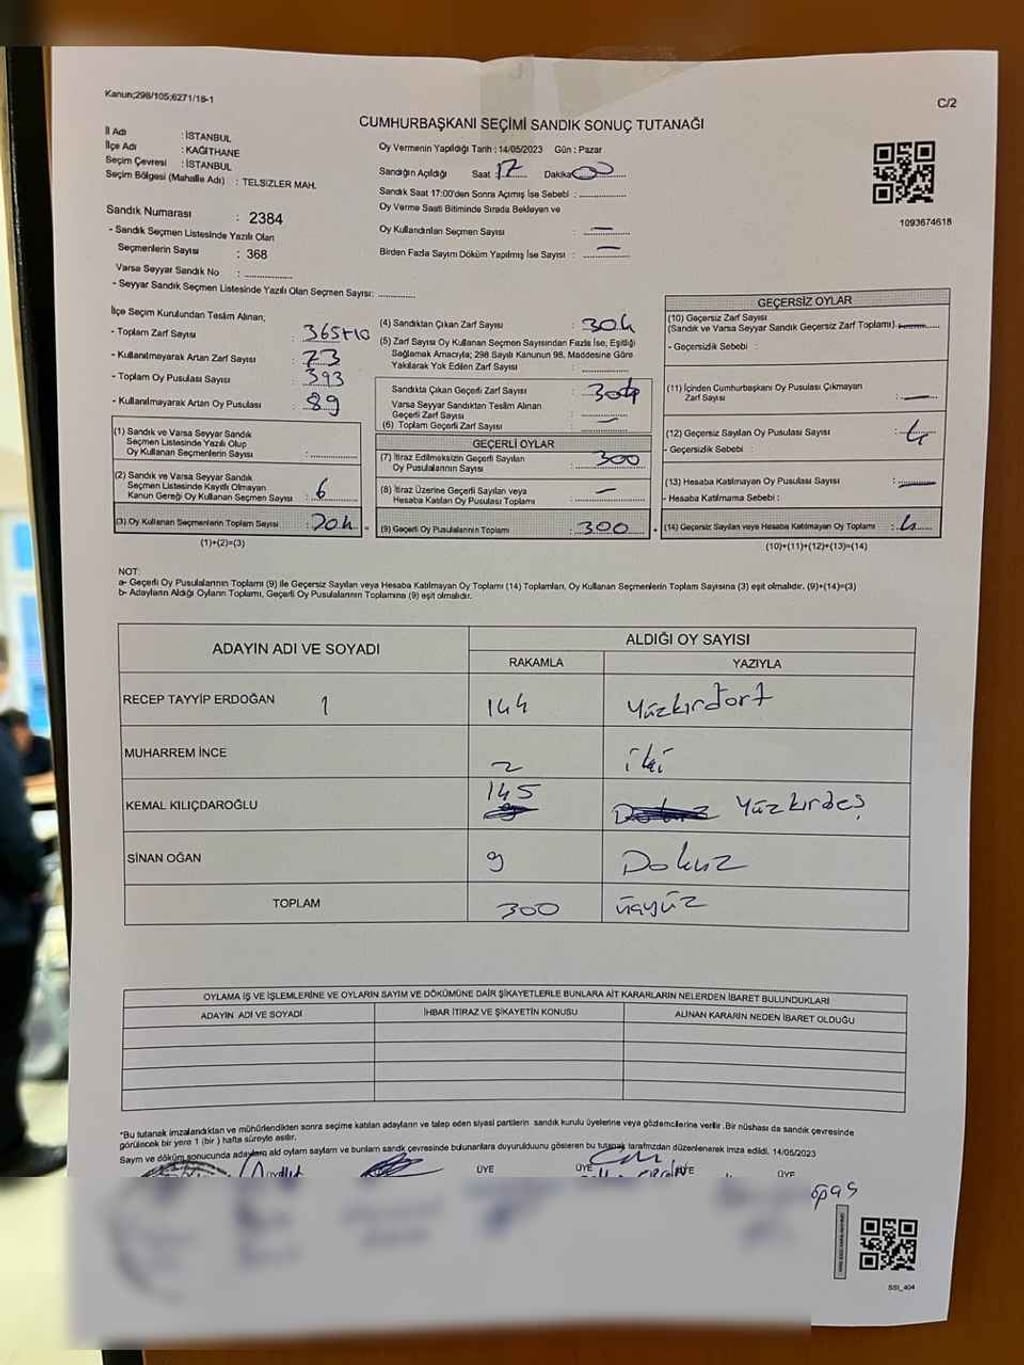 Kanun;298/105;6271/18-1
C/2
CUMHURBAŞKANI SEÇİMİ SANDIK SONUÇ TUTANAĞI
İl Adı : İSTANBUL
İlçe Adı : KAĞITHANE
Seçim Çevresi : İSTANBUL
Seçim Bölgesi (Mahalle Adı) : TELSİZLER MAH.
Sandık Numarası : 2384
- Sandık Seçmen Listesinde Yazılı Olan
Seçmenlerin Sayısı : 368
Varsa Seyyar Sandık No : ............
- Seyyar Sandık Seçmen Listesinde Yazılı Olan Seçmen Sayısı: ............
Oy Vermenin Yapıldığı Tarih : 14/05/2023 Gün : Pazar
Sandığın Açıldığı Saat : 17 Dakika 00
Sandık Saat 17:00'den Sonra Açımış İse Sebebi : ............
Oy Verme Saati Bitiminde Sırada Bekleyen ve
Oy Kullandırılan Seçmen Sayısı : —
Birden Fazla Sayım Döküm Yapılmış İse Sayısı : —
1093674618
İlçe Seçim Kurulundan Teslim Alınan;
- Toplam Zarf Sayısı : 365+10
- Kullanılmayarak Artan Zarf Sayısı : 73
- Toplam Oy Pusulası Sayısı : 393
- Kullanılmayarak Artan Oy Pusulası : 89
(1) Sandık ve Varsa Seyyar Sandık
Seçmen Listesinde Yazılı Olup
Oy Kullanan Seçmenlerin Sayısı : ............
(2) Sandık ve Varsa Seyyar Sandık
Seçmen Listesinde Kayıtlı Olmayan
Kanun Gereği Oy Kullanan Seçmen Sayısı : 6
(3) Oy Kullanan Seçmenlerin Toplam Sayısı : 304
(1)+(2)=(3)
(4) Sandıktan Çıkan Zarf Sayısı : 304
(5) Zarf Sayısı Oy Kullanan Seçmen Sayısından Fazla İse, Eşitliği
Sağlamak Amacıyla; 298 Sayılı Kanunun 98. Maddesine Göre
Yakılarak Yok Edilen Zarf Sayısı : ............
Sandıkta Çıkan Geçerli Zarf Sayısı : 304
Varsa Seyyar Sandıktan Teslim Alınan
Geçerli Zarf Sayısı : ............
(6) Toplam Geçerli Zarf Sayısı : —
GEÇERLİ OYLAR
(7) İtiraz Edilmeksizin Geçerli Sayılan
Oy Pusulalarının Sayısı : 300
(8) İtiraz Üzerine Geçerli Sayılan veya
Hesaba Katılan Oy Pusulası Toplamı : —
(9) Geçerli Oy Pusulalarının Toplamı : 300
GEÇERSİZ OYLAR
(10) Geçersiz Zarf Sayısı
(Sandık ve Varsa Seyyar Sandık Geçersiz Zarf Toplamı) : —
- Geçersizlik Sebebi :
(11) İçinden Cumhurbaşkanı Oy Pusulası Çıkmayan
Zarf Sayısı : —
(12) Geçersiz Sayılan Oy Pusulası Sayısı : 4
- Geçersizlik Sebebi :
(13) Hesaba Katılmayan Oy Pusulası Sayısı : —
- Hesaba Katılmama Sebebi :
(14) Geçersiz Sayılan veya Hesaba Katılmayan Oy Toplamı : 4
(10)+(11)+(12)+(13)=(14)
NOT:
a- Geçerli Oy Pusulalarının Toplamı (9) ile Geçersiz Sayılan veya Hesaba Katılmayan Oy Toplamı (14) Toplamları, Oy Kullanan Seçmenlerin Toplam Sayısına (3) eşit olmalıdır. (9)+(14)=(3)
b- Adayların Aldığı Oyların Toplamı, Geçerli Oy Pusulalarının Toplamına (9) eşit olmalıdır.
ADAYIN ADI VE SOYADI
ALDIĞI OY SAYISI
RAKAMLA YAZIYLA
RECEP TAYYİP ERDOĞAN 1 144 Yüzkırdört
MUHARREM İNCE 2 iki
KEMAL KILIÇDAROĞLU 145 Yüzkırdeş
SİNAN OĞAN 9 Dokuz
TOPLAM 300 üçyüz
OYLAMA İŞ VE İŞLEMLERİNE VE OYLARIN SAYIM VE DÖKÜMÜNE DAİR ŞİKAYETLERLE BUNLARA AİT KARARLARIN NELERDEN İBARET BULUNDUKLARI
ADAYIN ADI VE SOYADI İHBAR İTİRAZ VE ŞİKAYETİN KONUSU ALINAN KARARIN NEDEN İBARET OLDUĞU
*Bu tutanak imzalandıktan ve mühürlendikten sonra seçime katılan adayların ve talep eden siyasi partilerin sandık kurulu üyelerine veya gözlemcilerine verilir. Bir nüshası da sandık çevresinde
görülecek bir yere 1 (bir) hafta süreyle asılır.
Sayım ve döküm sonucunda adayların aldı oyların sayılarını ve bunların sandık çevresinde bulunanlara duyurulduunu gösteren bu tutanak tarafımızdan düzenlenerek imza edildi. 14/05/2023
ÜYE ÜYE ÜYE ÜYE
SSI_404